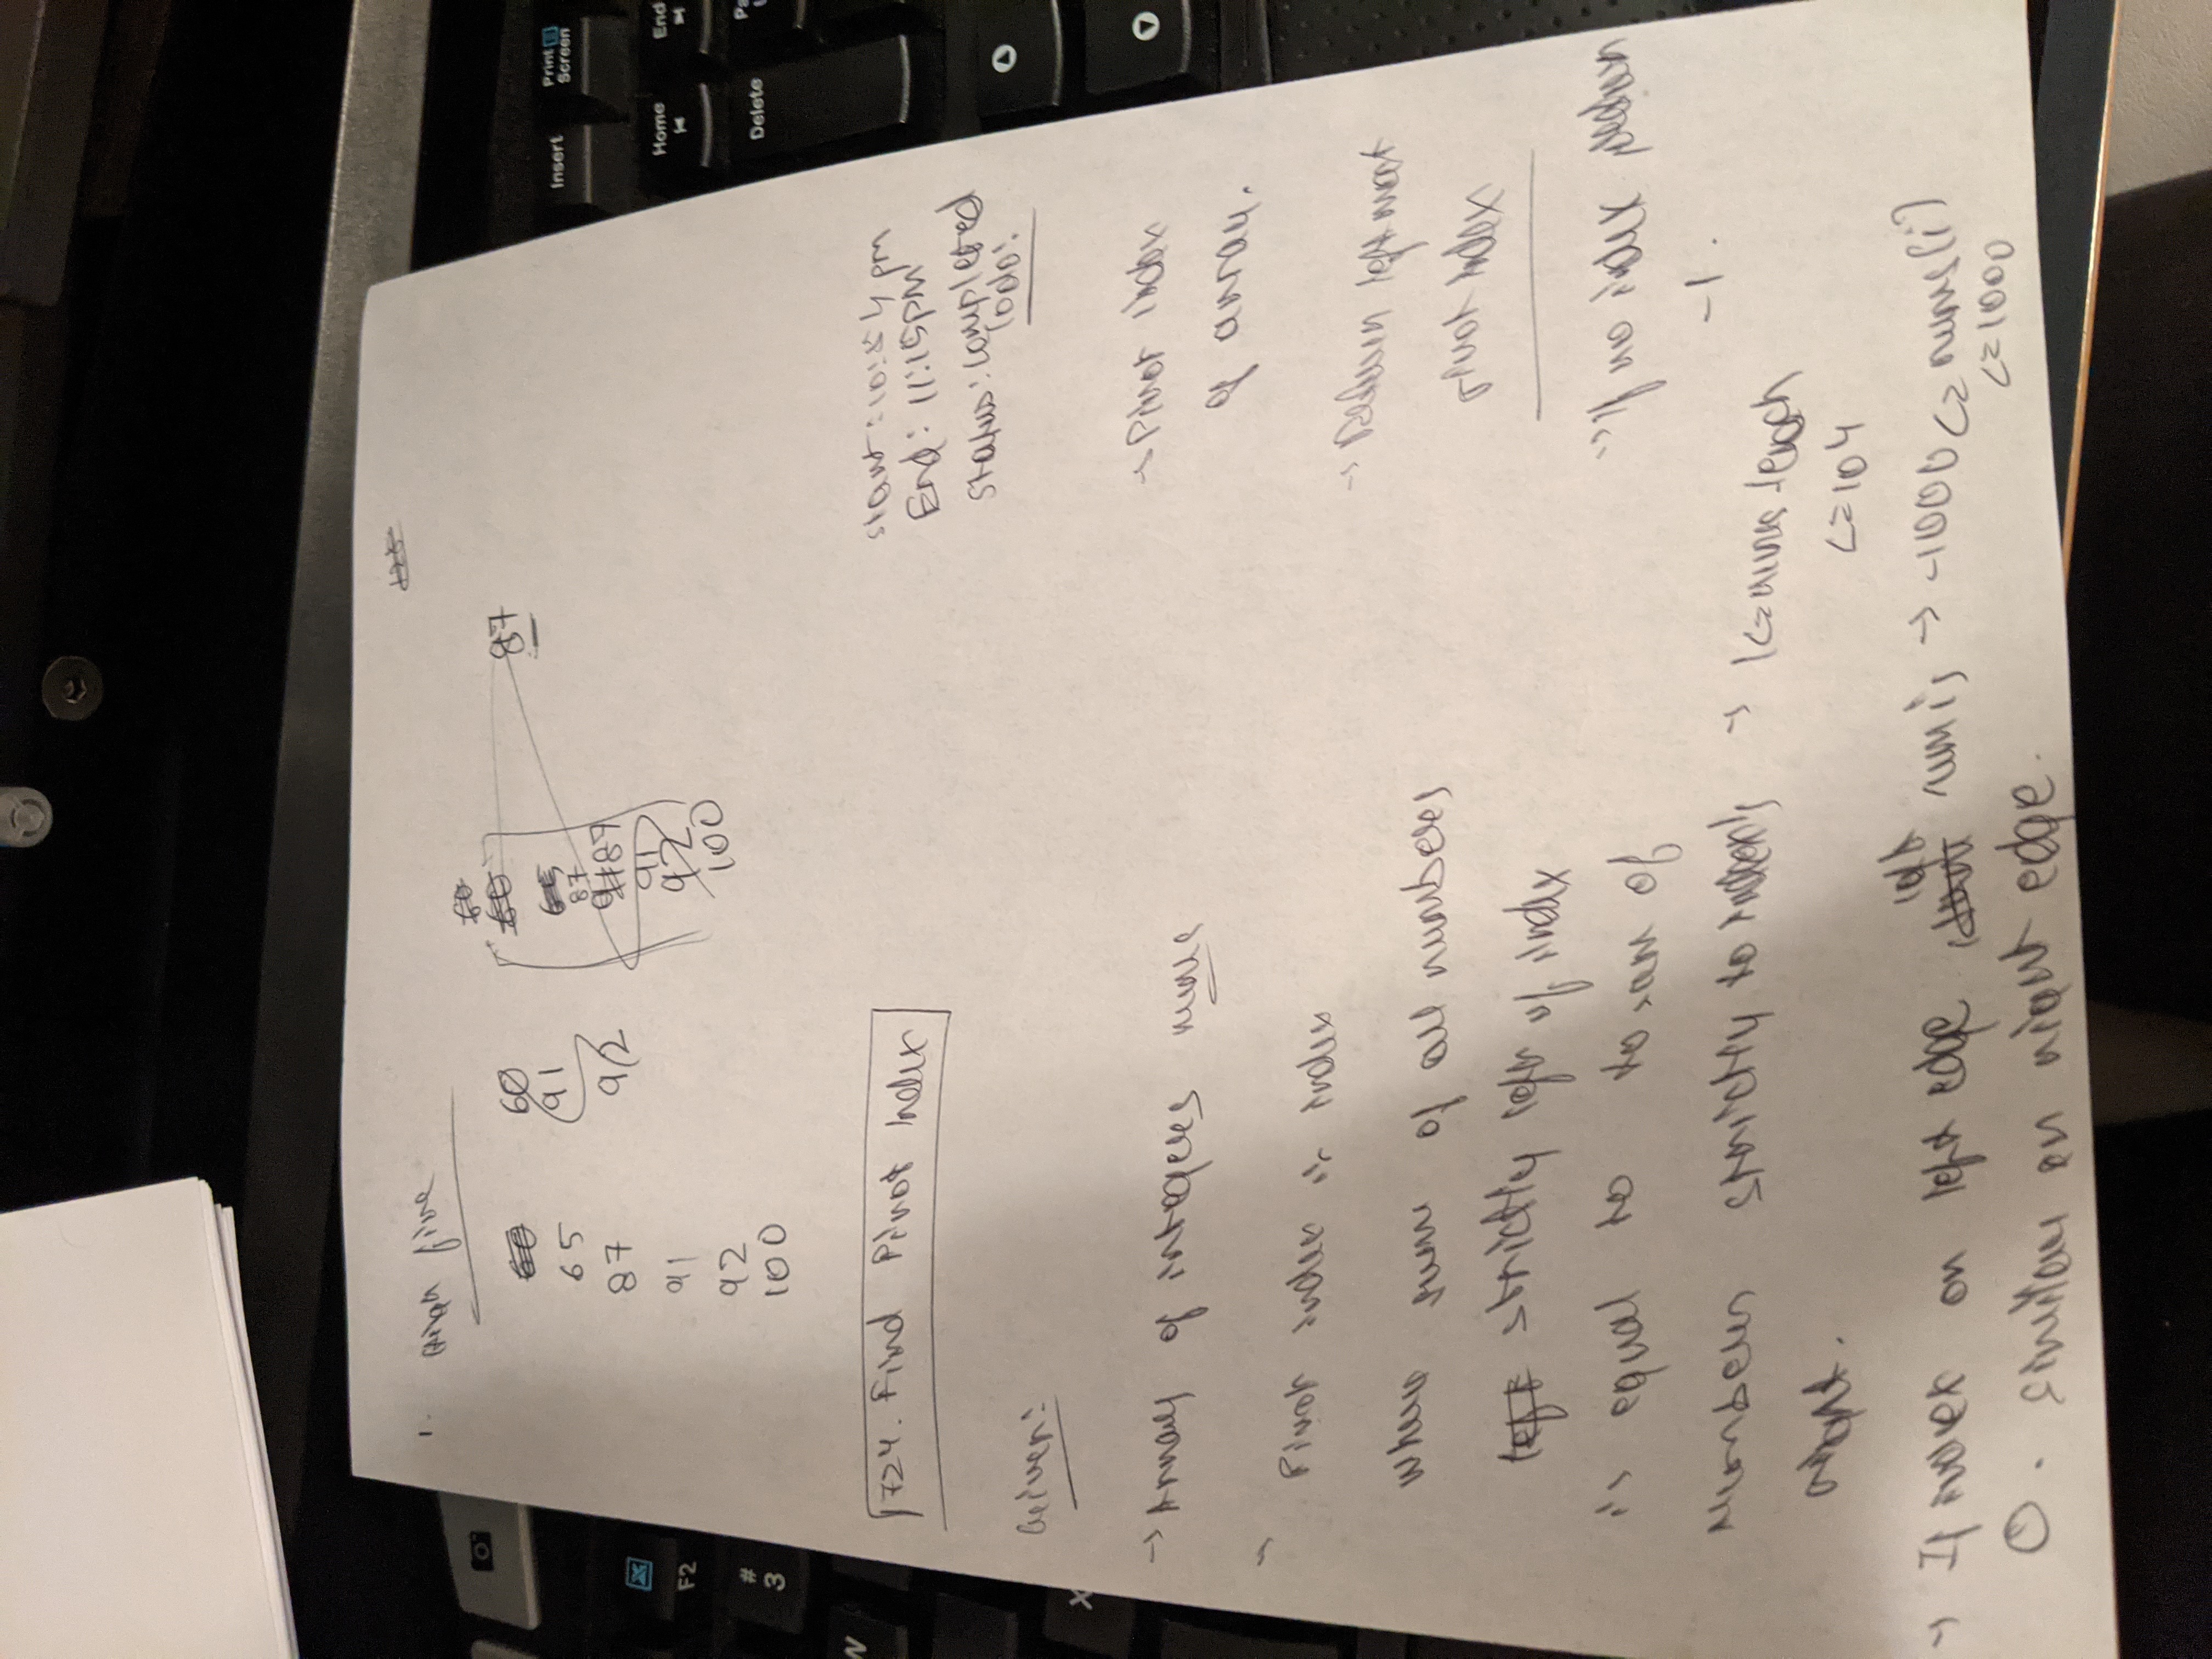 1. High five
65
87
91
92
100
60
91
92
87
87
91
92
100
87
724. Find Pivot Index
Start: 10:54 pm
End: 11:15PM
Status: completed
Given:
Todo:
→ Array of integers nums
→ Pivot index is index
where sum of all numbers
strictly left of index
is equal to to sum of
numbers strictly to index's
right.
→ If index on left edge left sum is
0. Similar on right edge.
→ Pivot index
of array.
→ Return leftmost
pivot index
→ If no index return
-1.
→ 1<=nums.length
<=104
→ -1000<=nums[i]
<=1000
Insert
Print
Screen
Home
End
Delete
F2
#
3
W
X